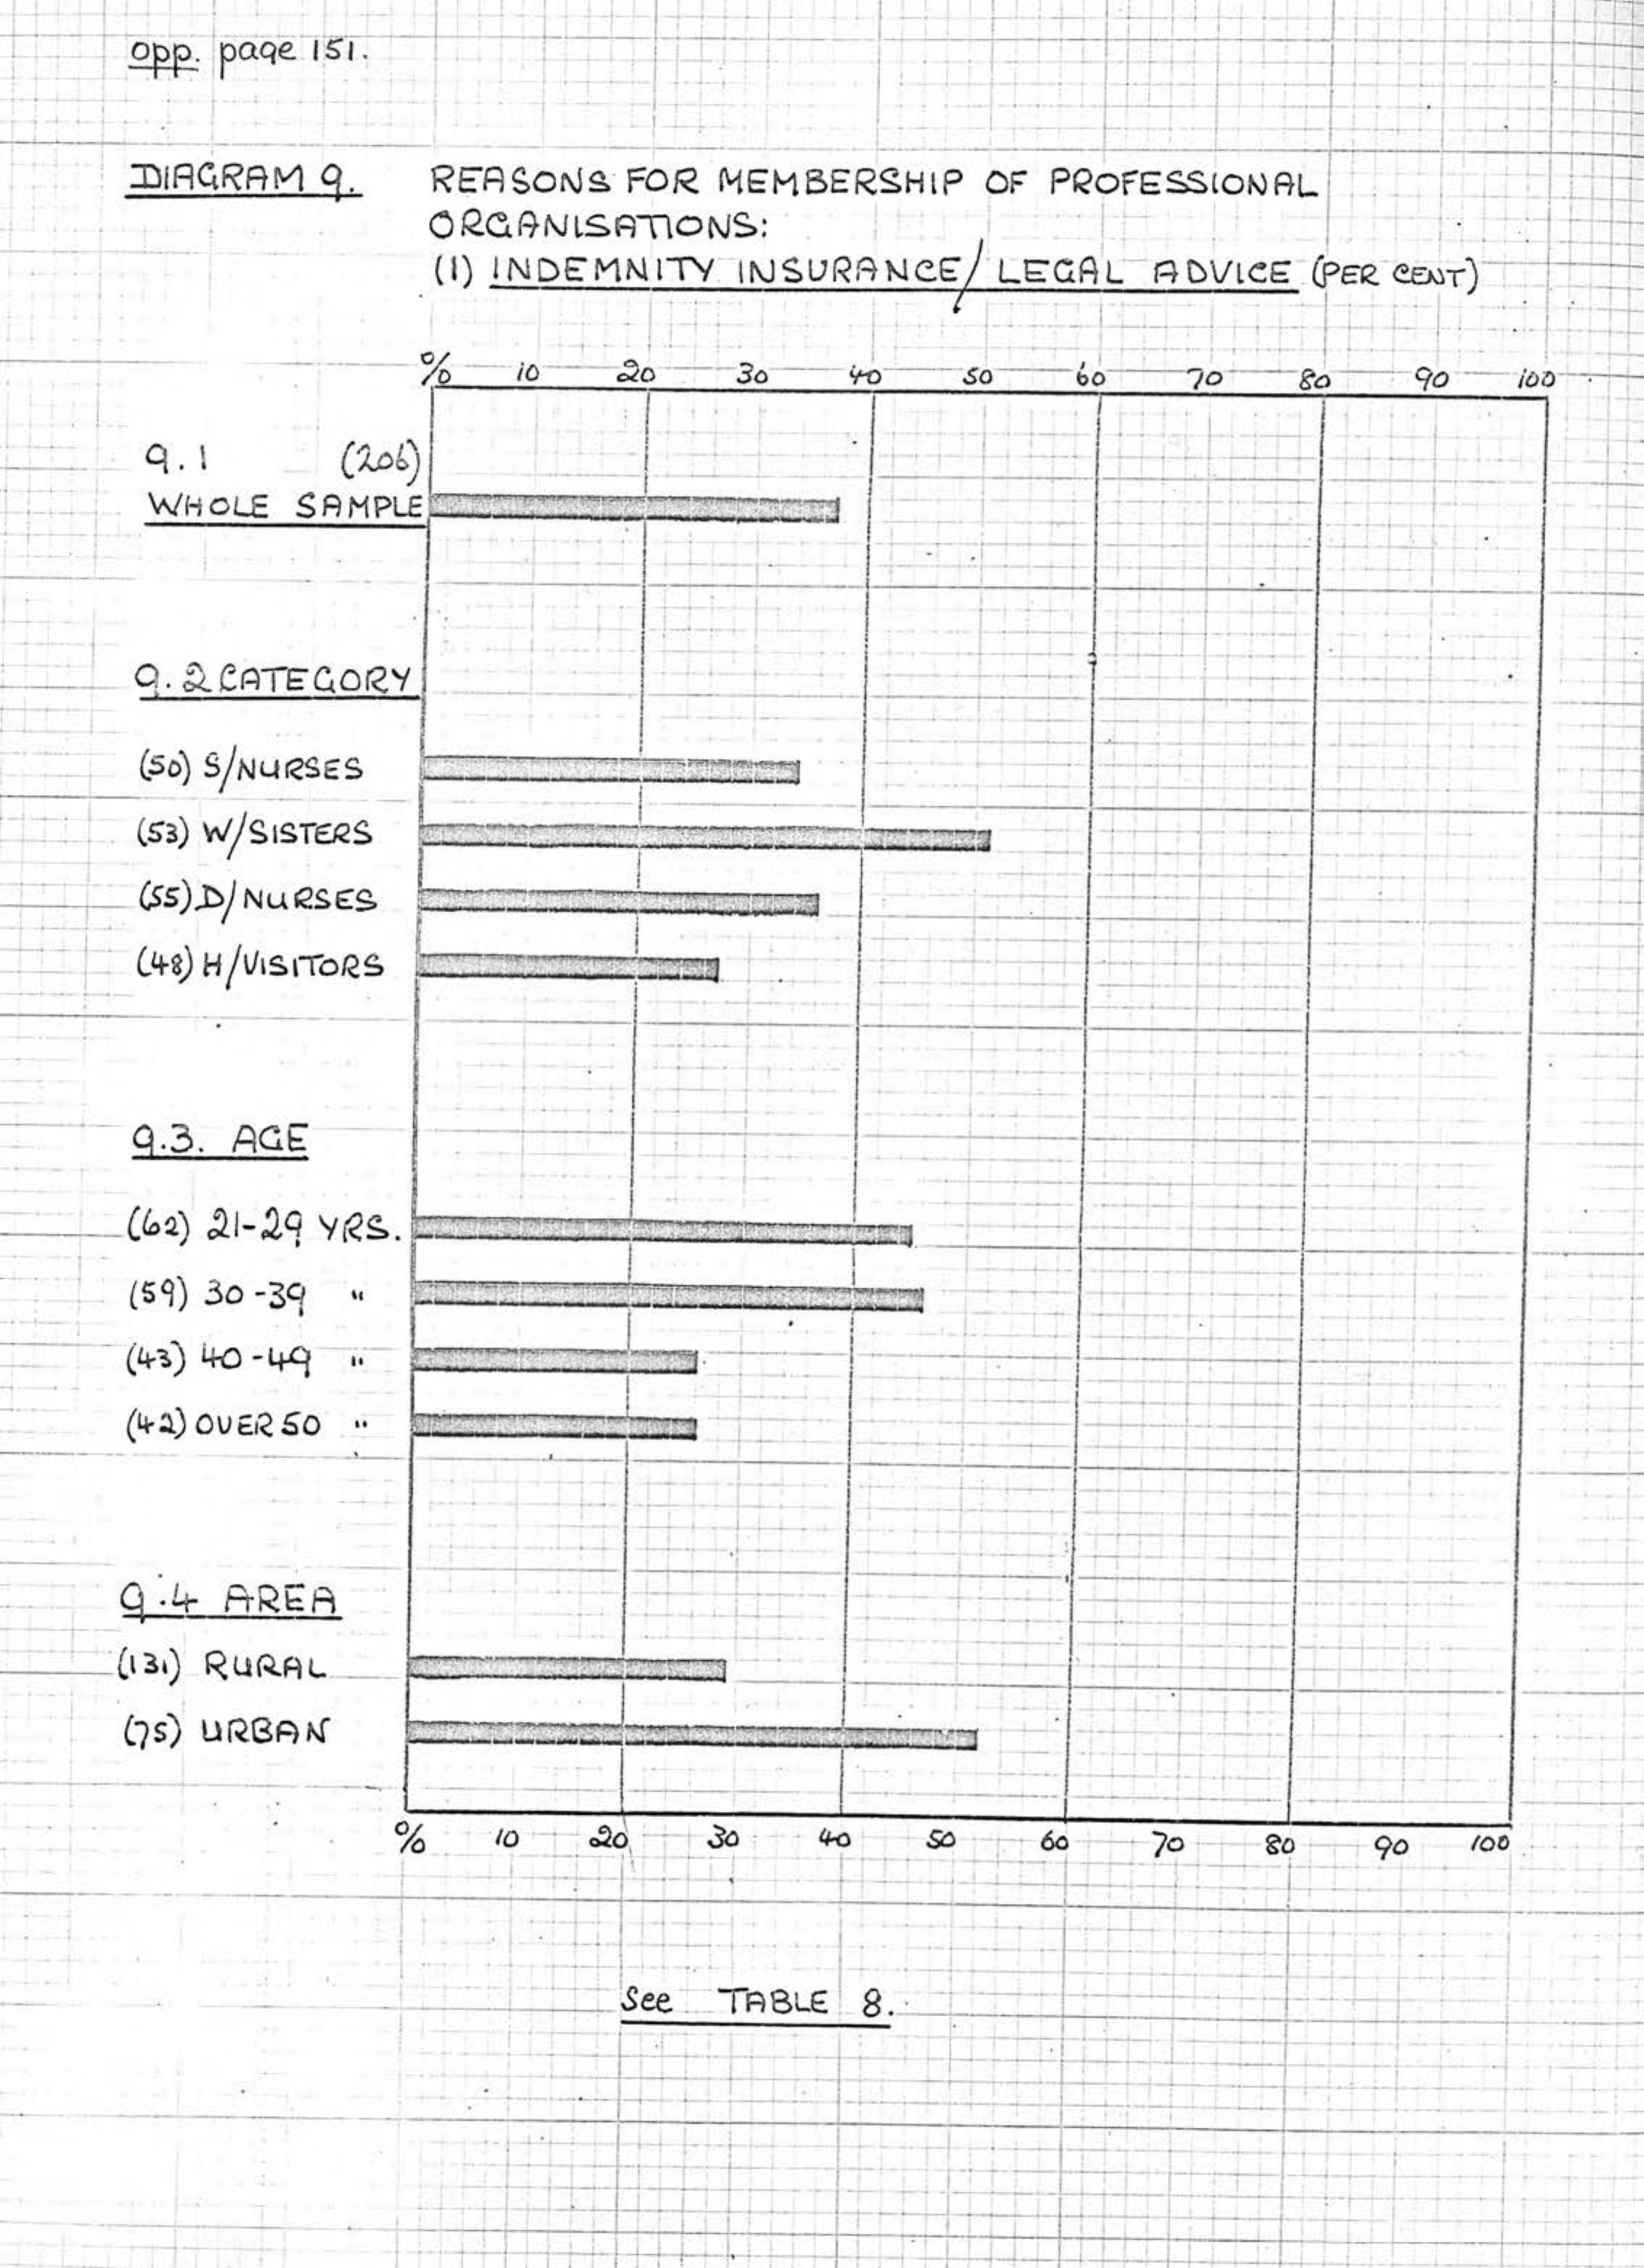 opp. page 151.
DIAGRAM 9. REASONS FOR MEMBERSHIP OF PROFESSIONAL
ORGANISATIONS:
(1) INDEMNITY INSURANCE/LEGAL ADVICE (PER CENT)
% 10 20 30 40 50 60 70 80 90 100
9.1 (206)
WHOLE SAMPLE
9.2 CATEGORY
(50) S/NURSES
(53) W/SISTERS
(55) D/NURSES
(48) H/VISITORS
9.3. AGE
(62) 21-29 YRS.
(59) 30-39 "
(43) 40-49 "
(42) OVER 50 "
9.4 AREA
(131) RURAL
(75) URBAN
% 10 20 30 40 50 60 70 80 90 100
See TABLE 8.